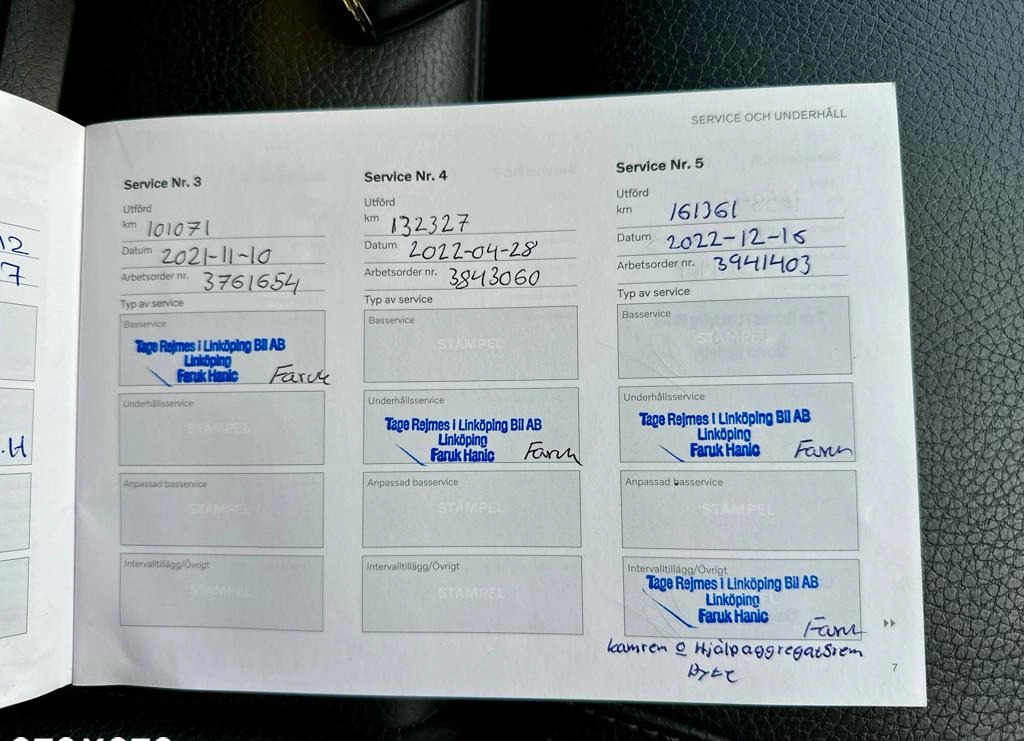 SERVICE OCH UNDERHÅLL
12
7
.H
Service Nr. 3
Utförd
km 101071
Datum 2021-11-10
Arbetsorder nr. 3761654
Typ av service
Basservice
Tage Rejmes i Linköping Bil AB
Linköping
Faruk Hanic Faruk
Underhållsservice
STÄMPEL
Anpassad basservice
STÄMPEL
Intervalltillägg/Övrigt
STÄMPEL
Service Nr. 4
Utförd
km 132327
Datum 2022-04-28
Arbetsorder nr. 3843060
Typ av service
Basservice
STÄMPEL
Underhållsservice
Tage Rejmes i Linköping Bil AB
Linköping
Faruk Hanic Faruk
Anpassad basservice
STÄMPEL
Intervalltillägg/Övrigt
STÄMPEL
Service Nr. 5
Utförd
km 161361
Datum 2022-12-16
Arbetsorder nr. 3941403
Typ av service
Basservice
STÄMPEL
Underhållsservice
Tage Rejmes i Linköping Bil AB
Linköping
Faruk Hanic Faruk
Anpassad basservice
STÄMPEL
Intervalltillägg/Övrigt
Tage Rejmes i Linköping Bil AB
Linköping
Faruk Hanic Faruk
kamrem o Hjälpaggregatsrem
Byte
7